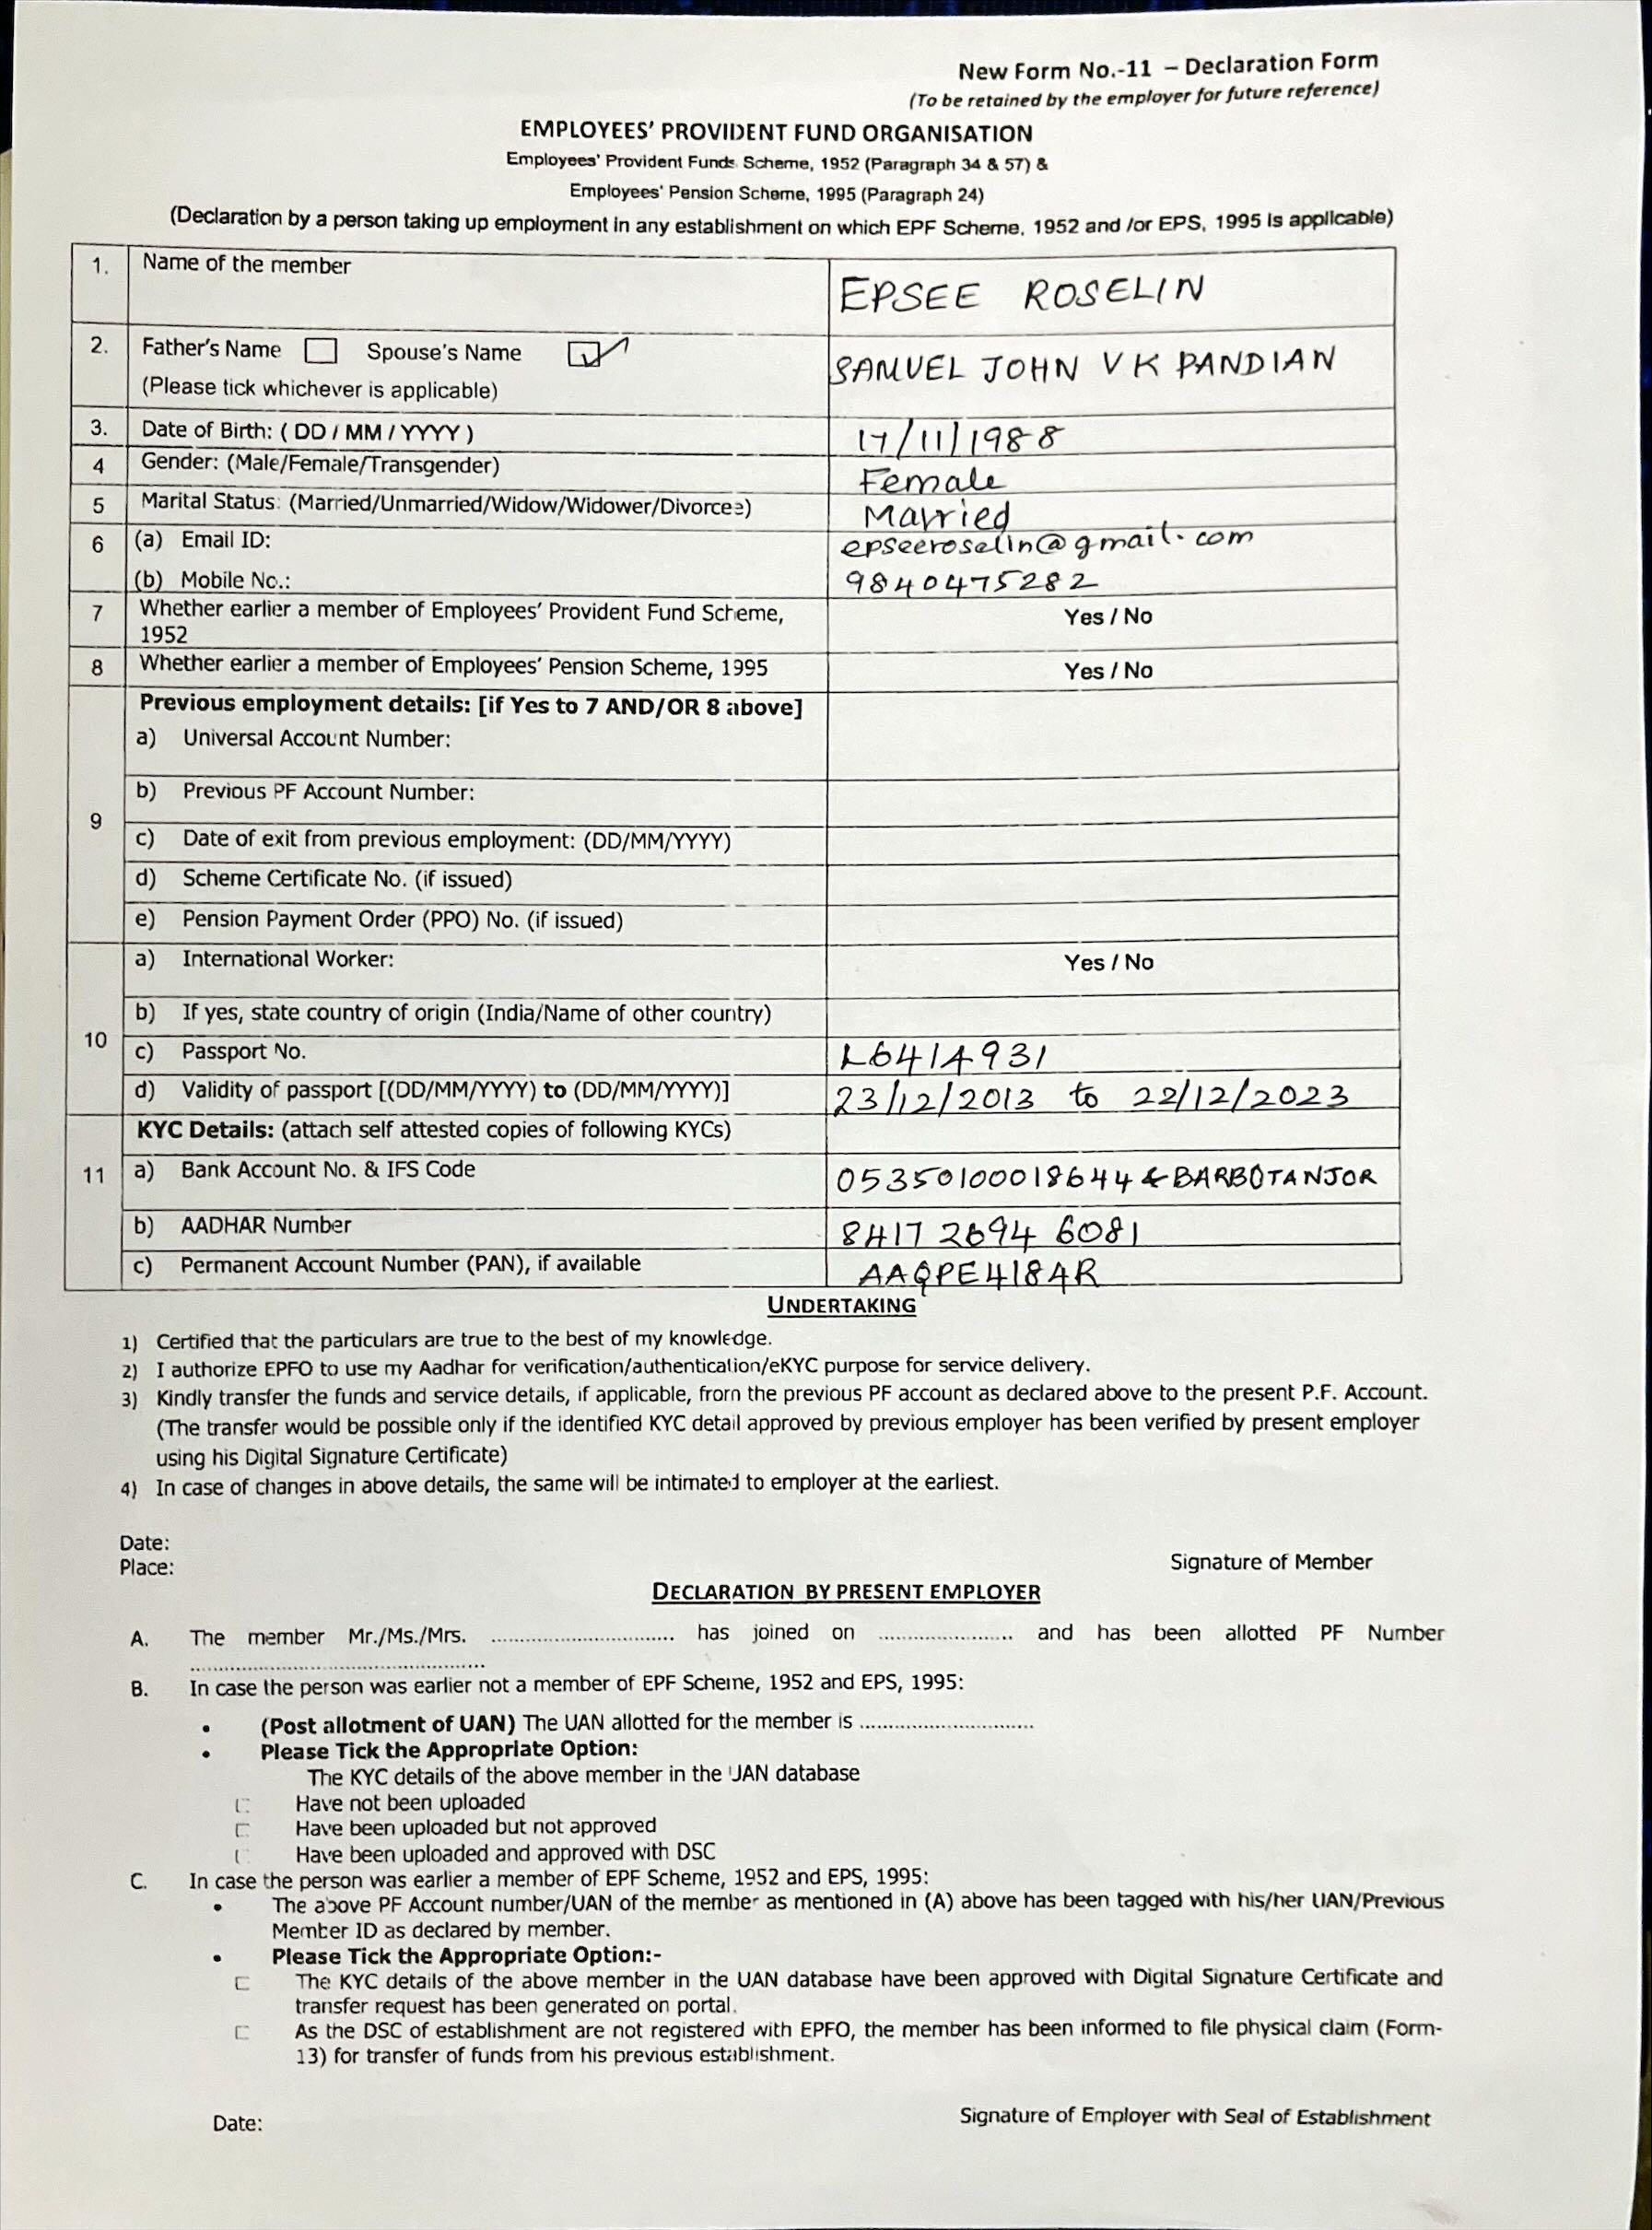 New Form No.-11 – Declaration Form
(To be retained by the employer for future reference)
EMPLOYEES' PROVIDENT FUND ORGANISATION
Employees' Provident Funds Scheme, 1952 (Paragraph 34 & 57) &
Employees' Pension Scheme, 1995 (Paragraph 24)
(Declaration by a person taking up employment in any establishment on which EPF Scheme, 1952 and /or EPS, 1995 is applicable)
1. Name of the member EPSEE ROSELIN
2. Father's Name Spouse's Name SAMUEL JOHN V K PANDIAN
(Please tick whichever is applicable)
3. Date of Birth: ( DD / MM / YYYY ) 17/11/1988
4 Gender: (Male/Female/Transgender) Female
5 Marital Status: (Married/Unmarried/Widow/Widower/Divorcee) Married
6 (a) Email ID: epseeroselin@gmail.com
(b) Mobile No.: 9840475282
7 Whether earlier a member of Employees' Provident Fund Scheme, Yes / No
1952
8 Whether earlier a member of Employees' Pension Scheme, 1995 Yes / No
9 Previous employment details: [if Yes to 7 AND/OR 8 above]
a) Universal Account Number:
b) Previous PF Account Number:
c) Date of exit from previous employment: (DD/MM/YYYY)
d) Scheme Certificate No. (if issued)
e) Pension Payment Order (PPO) No. (if issued)
10 a) International Worker: Yes / No
b) If yes, state country of origin (India/Name of other country)
c) Passport No. L6414931
d) Validity of passport [(DD/MM/YYYY) to (DD/MM/YYYY)] 23/12/2013 to 22/12/2023
11 KYC Details: (attach self attested copies of following KYCs)
a) Bank Account No. & IFS Code 05350100018644 & BARB0TANJOR
b) AADHAR Number 8417 2694 6081
c) Permanent Account Number (PAN), if available AAQPE4184R
UNDERTAKING
1) Certified that the particulars are true to the best of my knowledge.
2) I authorize EPFO to use my Aadhar for verification/authentication/eKYC purpose for service delivery.
3) Kindly transfer the funds and service details, if applicable, from the previous PF account as declared above to the present P.F. Account.
(The transfer would be possible only if the identified KYC detail approved by previous employer has been verified by present employer
using his Digital Signature Certificate)
4) In case of changes in above details, the same will be intimated to employer at the earliest.
Date:
Place: Signature of Member
DECLARATION BY PRESENT EMPLOYER
A. The member Mr./Ms./Mrs. .............................. has joined on ...................... and has been allotted PF Number
................................................
B. In case the person was earlier not a member of EPF Scheme, 1952 and EPS, 1995:
• (Post allotment of UAN) The UAN allotted for the member is ............................
• Please Tick the Appropriate Option:
The KYC details of the above member in the UAN database
Have not been uploaded
Have been uploaded but not approved
Have been uploaded and approved with DSC
C. In case the person was earlier a member of EPF Scheme, 1952 and EPS, 1995:
• The above PF Account number/UAN of the member as mentioned in (A) above has been tagged with his/her UAN/Previous
Member ID as declared by member.
• Please Tick the Appropriate Option:-
The KYC details of the above member in the UAN database have been approved with Digital Signature Certificate and
transfer request has been generated on portal.
As the DSC of establishment are not registered with EPFO, the member has been informed to file physical claim (Form-
13) for transfer of funds from his previous establishment.
Date: Signature of Employer with Seal of Establishment